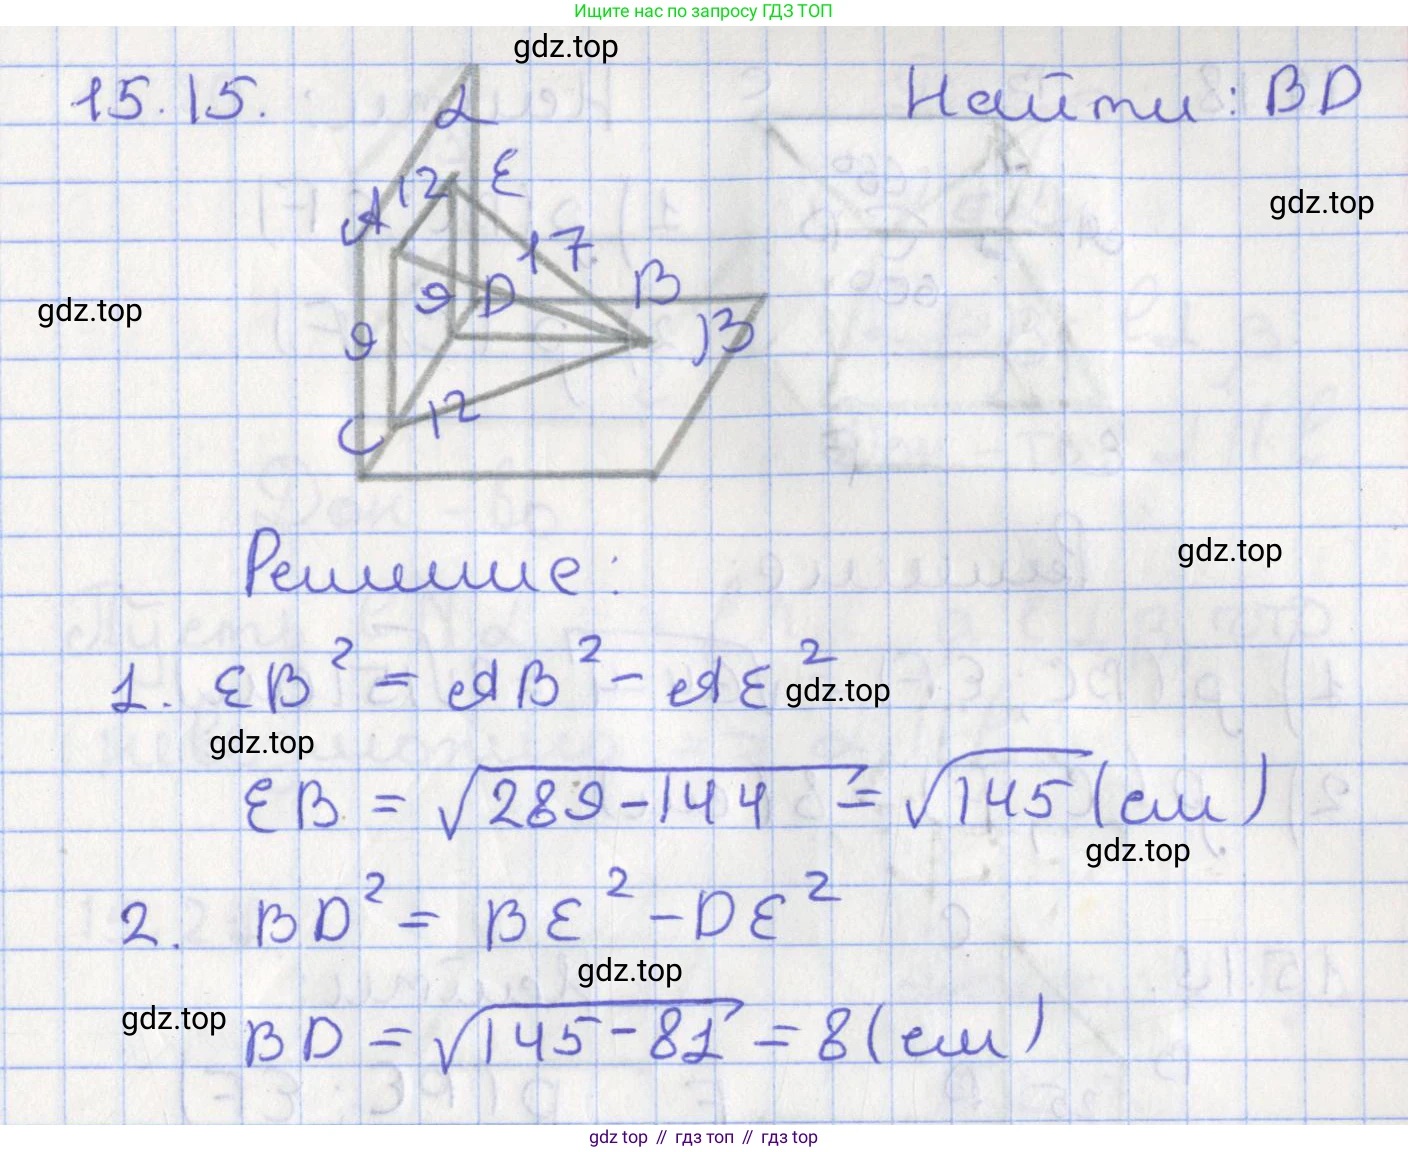 Ищите нас по запросу ГДЗ ТОП
gdz.top
15.15.
Найти: BD
α
12
E
A
gdz.top
17
gdz.top
9
D
B
β
9
12
C
gdz.top
Решение:
1. EB² = AB² - AE²
gdz.top
gdz.top
EB = √289-144 = √145 (см)
gdz.top
2. BD² = BE² - DE²
gdz.top
gdz.top
BD = √145-81 = 8 (см)
gdz top // гдз топ // гдз top